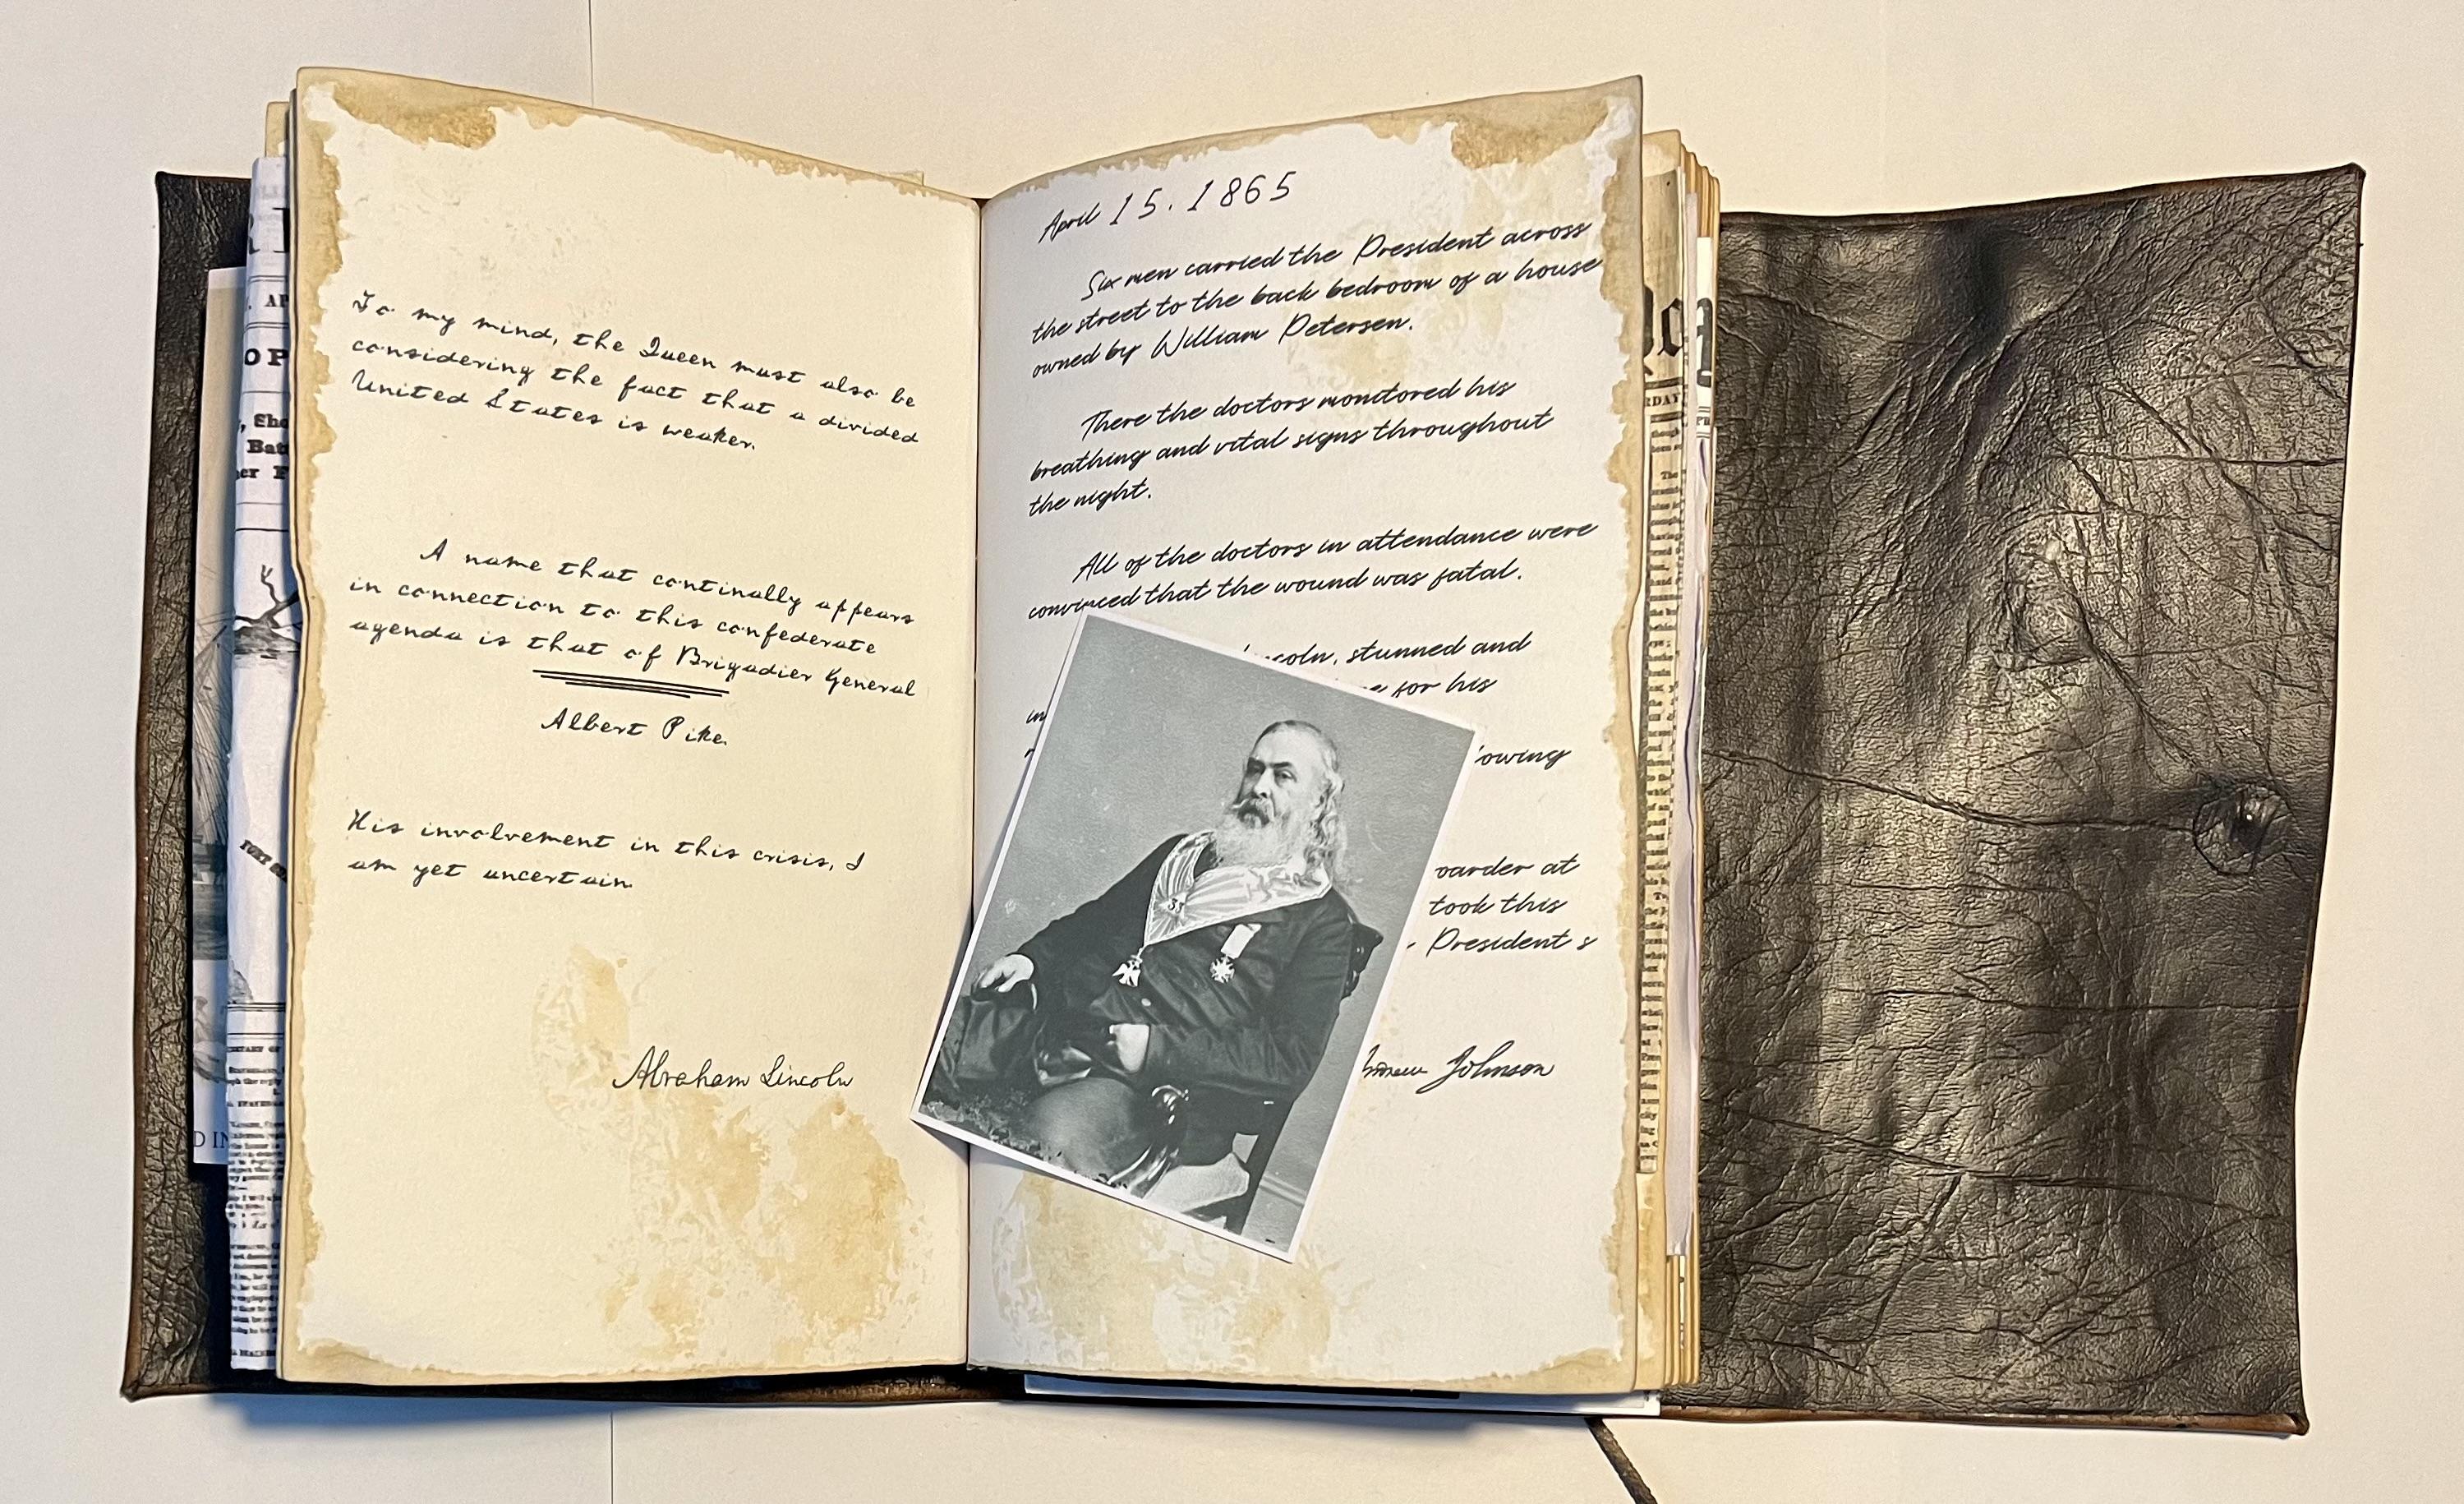 To my mind, the Queen must also be
considering the fact that a divided
United States is weaker.
A name that continally appears
in connection to this confederate
agenda is that of Brigadier General
Albert Pike
His involvement in this crisis, I
am yet uncertain
Abraham Lincoln
April 15. 1865
Six men carried the President across
the street to the back bedroom of a house
owned by William Petersen.
There the doctors monitored his
breathing and vital signs throughout
the night.
All of the doctors in attendance were
convinced that the wound was fatal.
stunned and
for his
oarder at
took this
President s
Johnson
33
OP